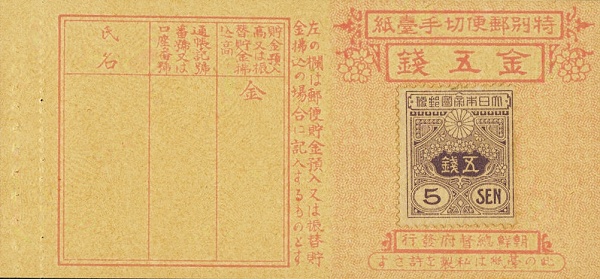 特別郵便切手臺紙
金五錢
大日本帝國郵便
五錢
5 SEN
朝鮮總督府發行
此の臺紙は私製を許さす
左の欄は郵便貯金預入又は振替貯
金拂込の場合に記入するものとす
貯金預入
高又は振
替貯金拂
込高
金
通帳記號
番號又は
口座番號
氏名